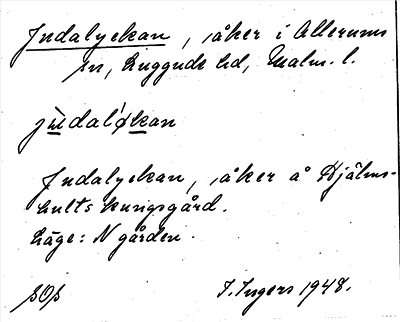 Jndalyckan, åker i Allerums
sn, Luggude hd, Malm. l.
jndaløkan
Jndalyckan, åker å Hjälms-
hults kungsgård.
Läge: N gården.
I. Ingers 1948.